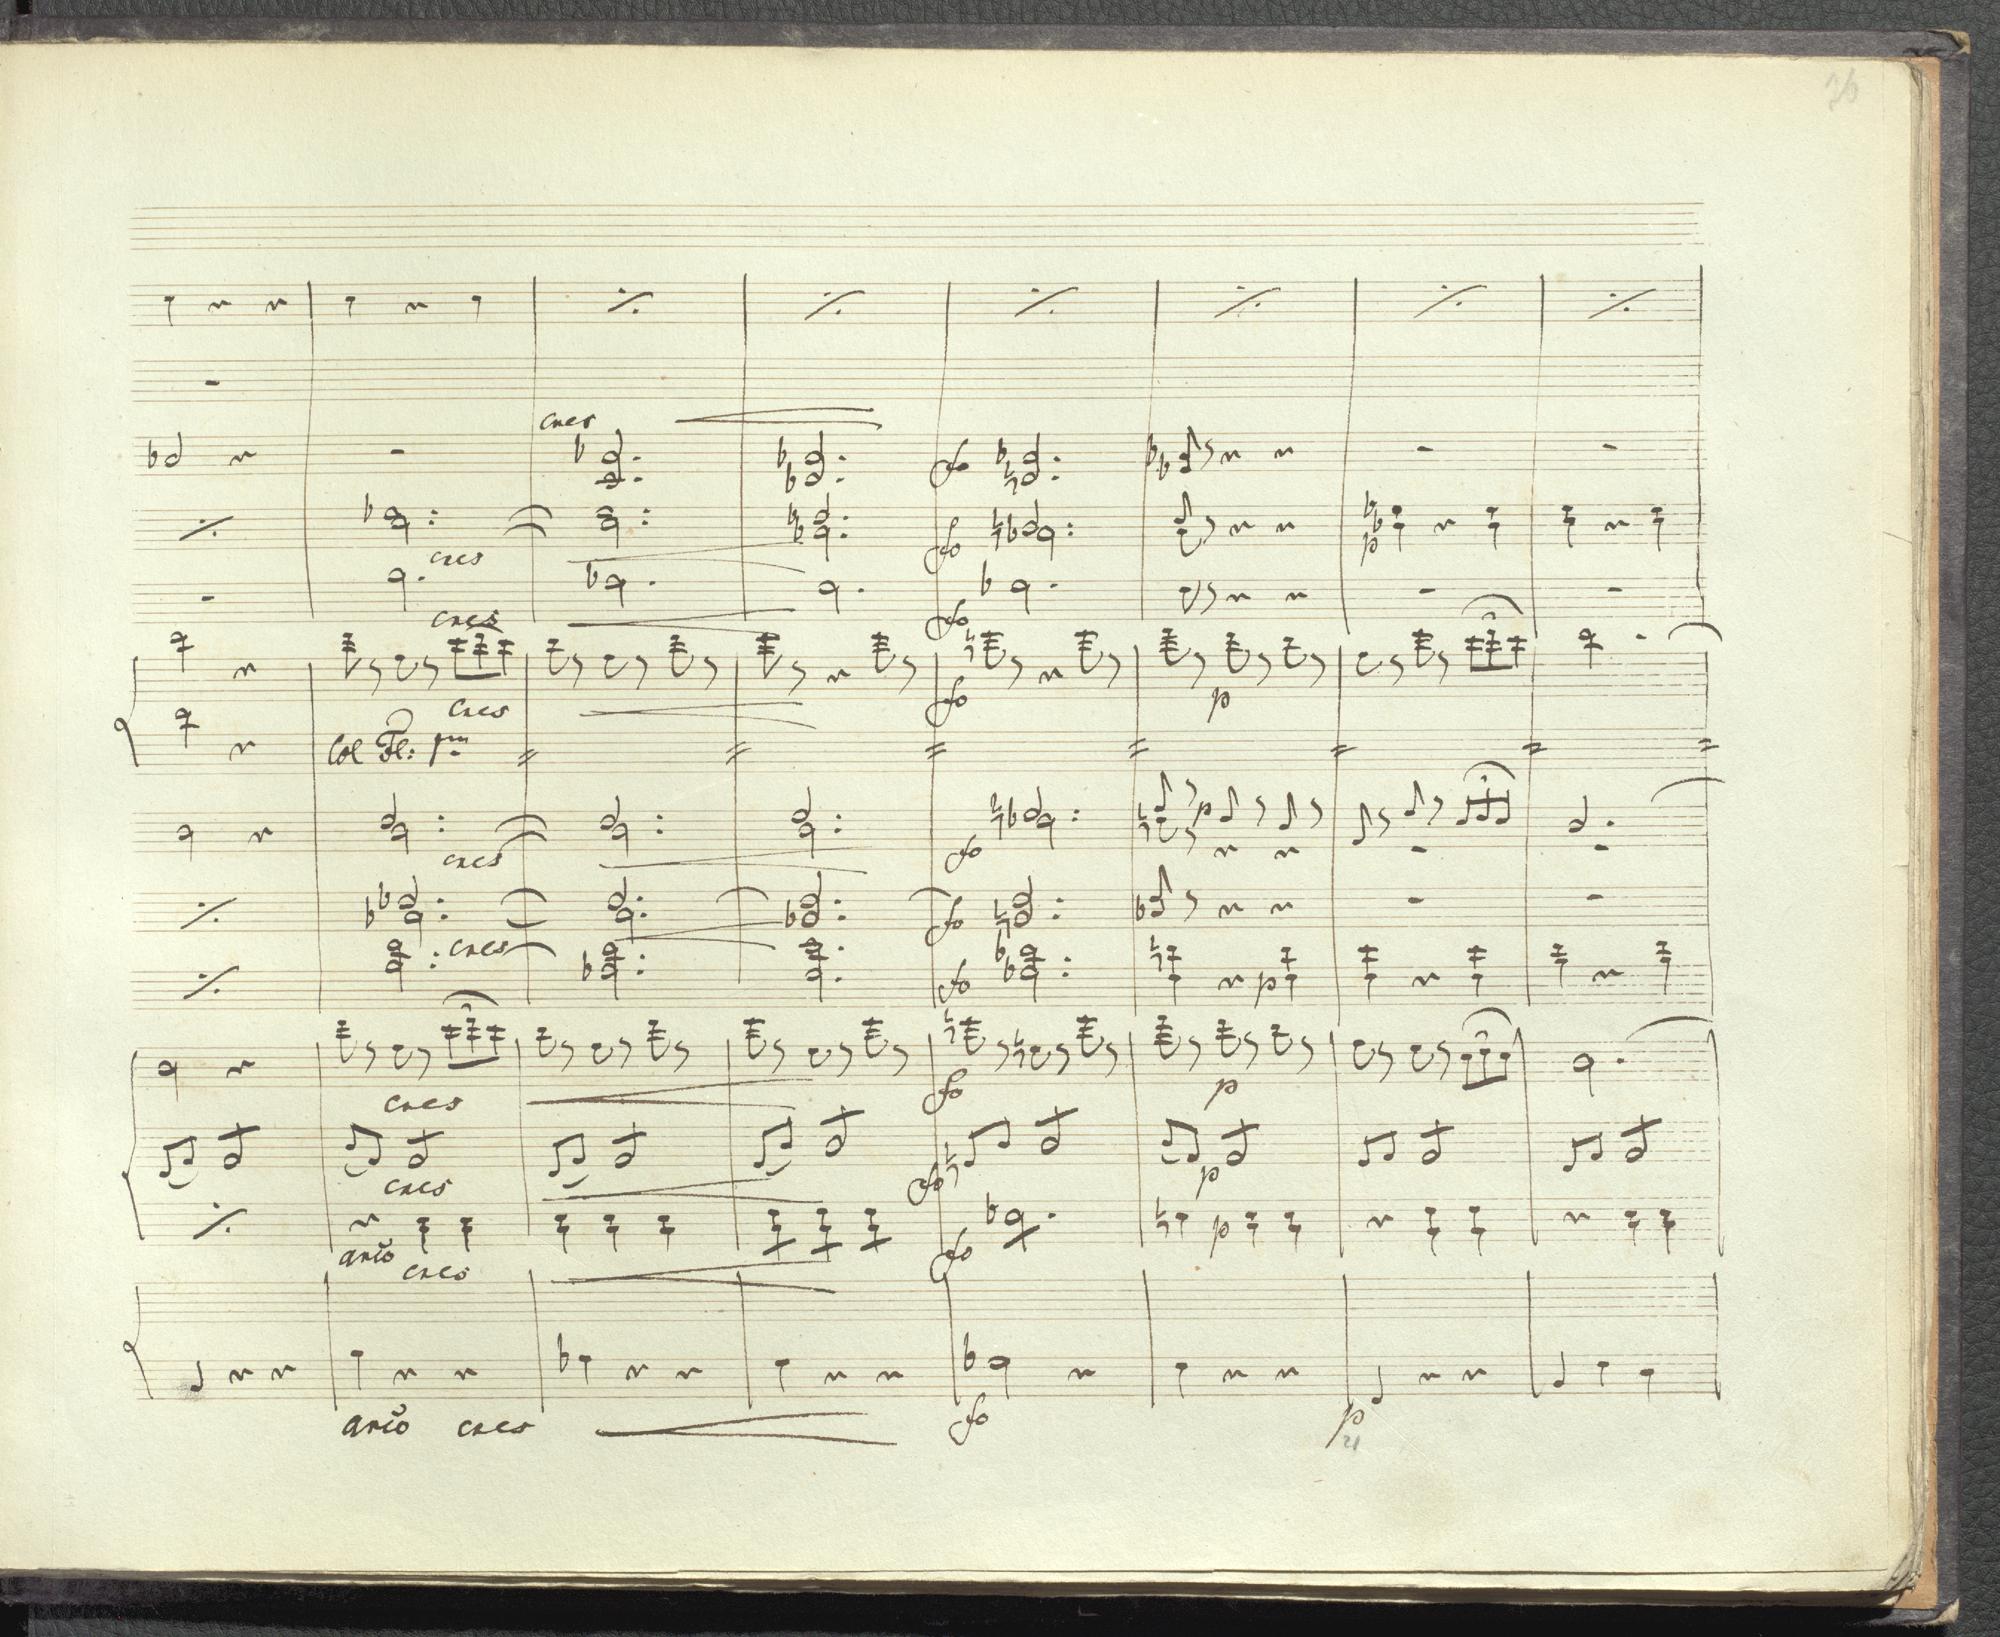 36
cres
fo
cres
fo
p
cres
fo
cres
fo
p
Col Fl: pmo
cres
fo
p
cres
fo
fo
p
cres
fo
p
cres
fo
p
arco
cres
fo
p
arco cres
fo
p
21